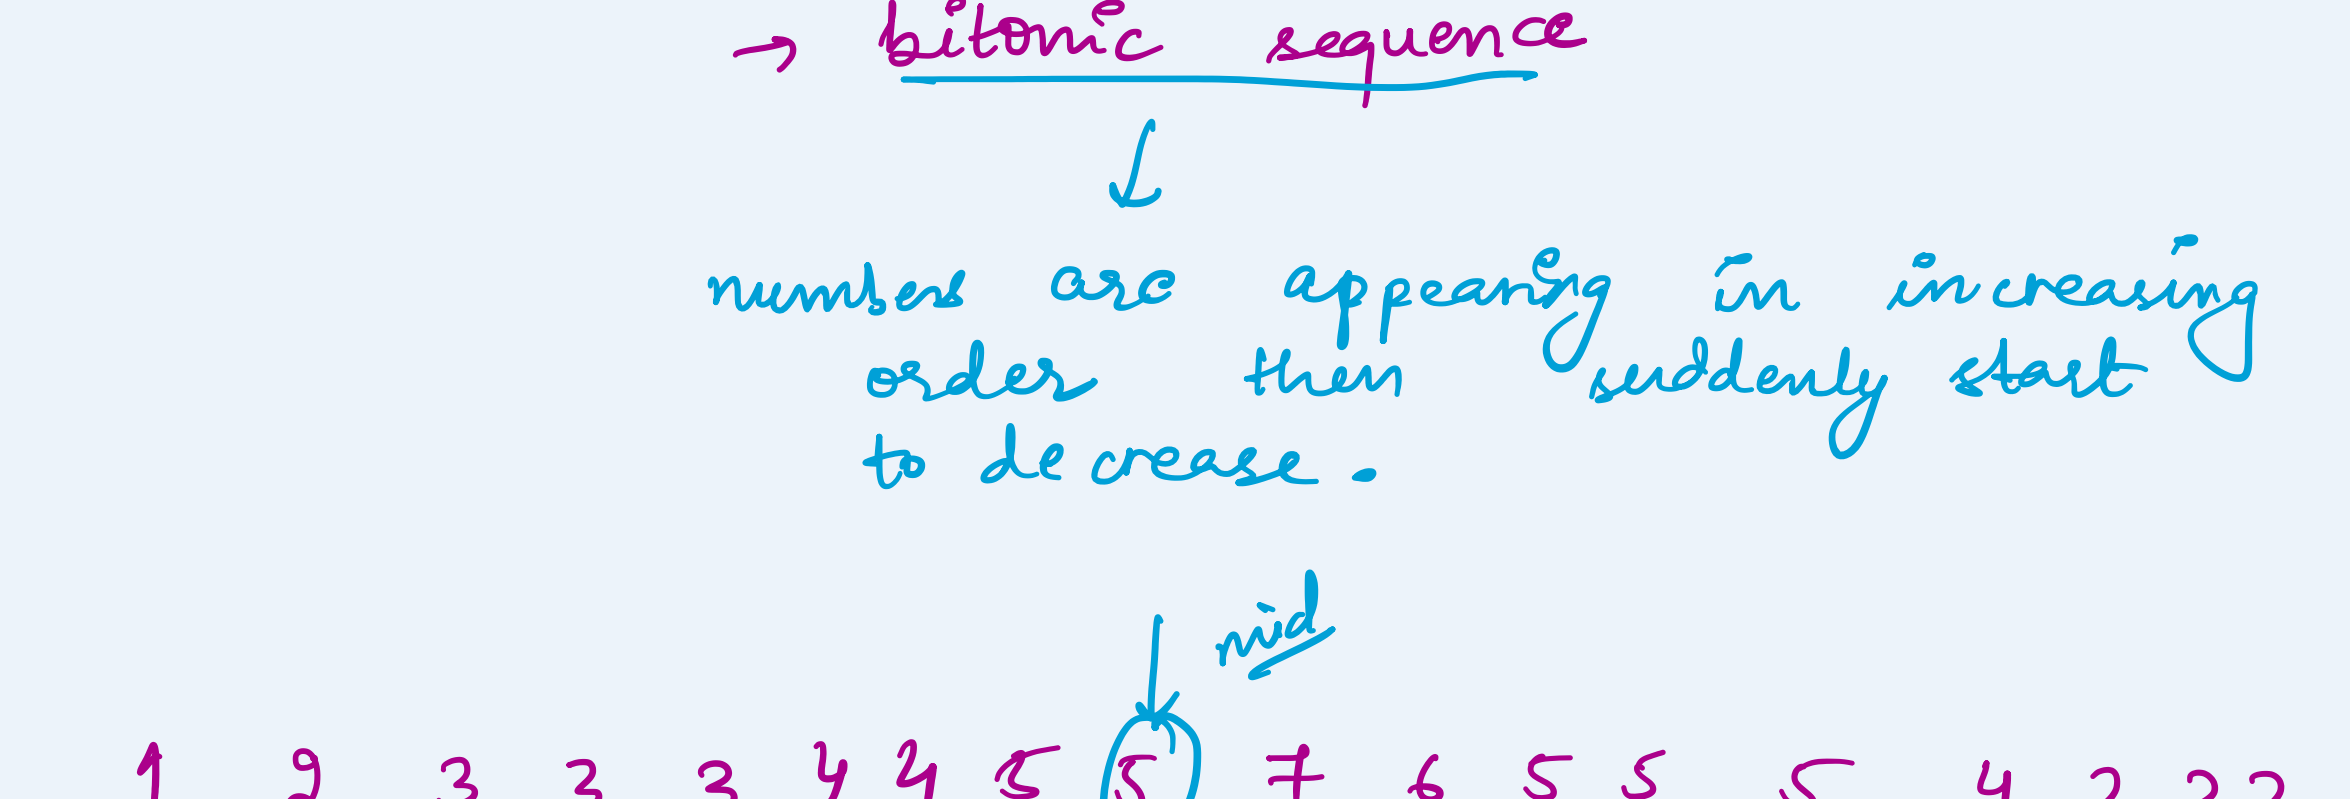 → bitonic sequence
numbers are appearing in increasing
order then suddenly start
to decrease.
mid
1 2 3 3 3 4 4 5 5 7 6 5 5 5 4